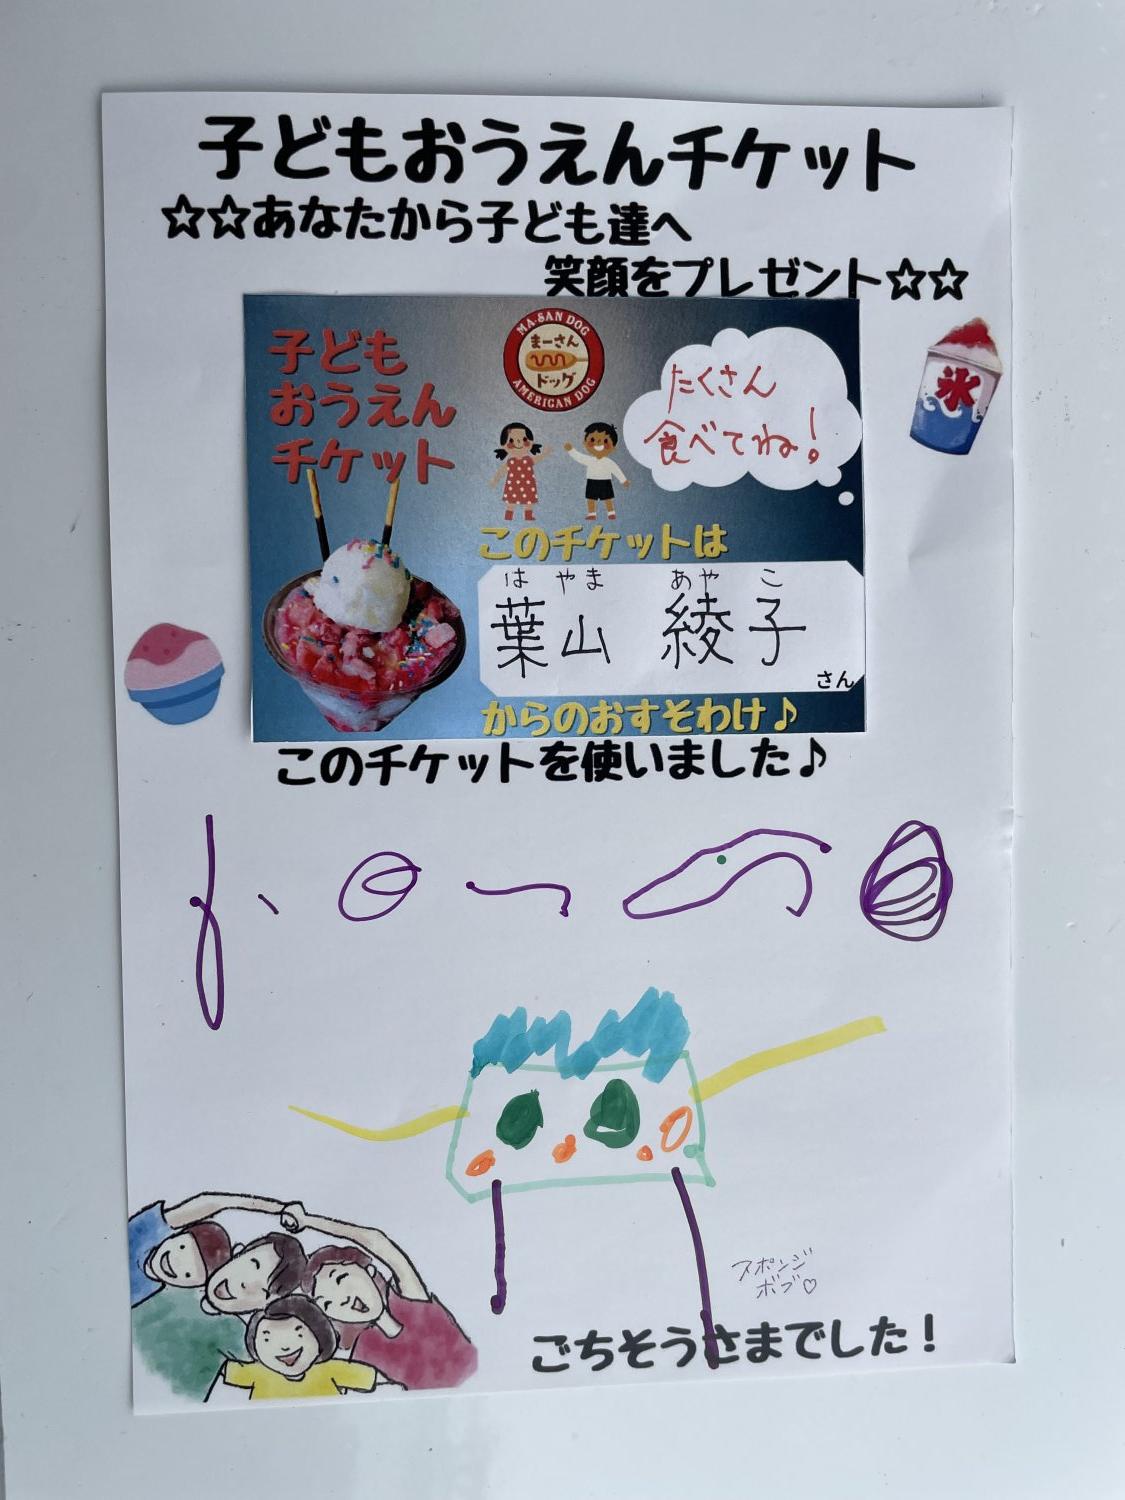 子どもおうえんチケット
☆☆あなたから子ども達へ
笑顔をプレゼント☆☆
子ども
おうえん
チケット
MA-SAN DOG
まーさん
ドッグ
AMERICAN DOG
たくさん
食べてね!
氷
このチケットは
は やま あや こ
葉山 綾子
さん
からのおすそわけ♪
このチケットを使いました♪
スポンジ
ボブ♡
ごちそうさまでした!